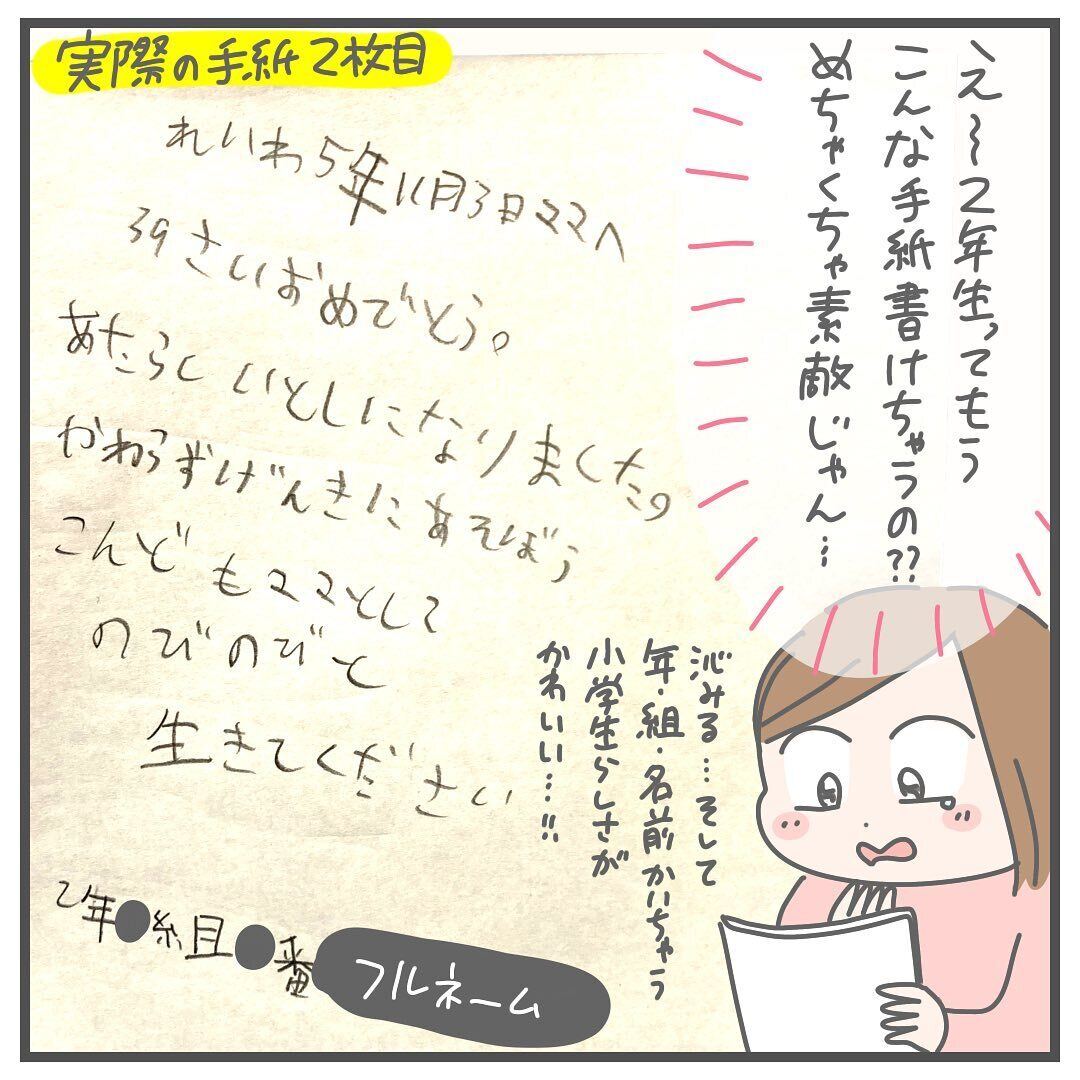 実際の手紙2枚目
え〜2年生ってもう
こんな手紙書けちゃうの??
めちゃくちゃ素敵じゃん…
れいわ5年11月3日ママへ
39さいおめでとう。
あたらしいとしになりました。
かわらずげんきにあそぼう
こんどもママとして
のびのびと
生きてください
2年●組目●番
フルネーム
沁みる…そして
年・組・名前かいちゃう
小学生らしさが
かわいい…!!